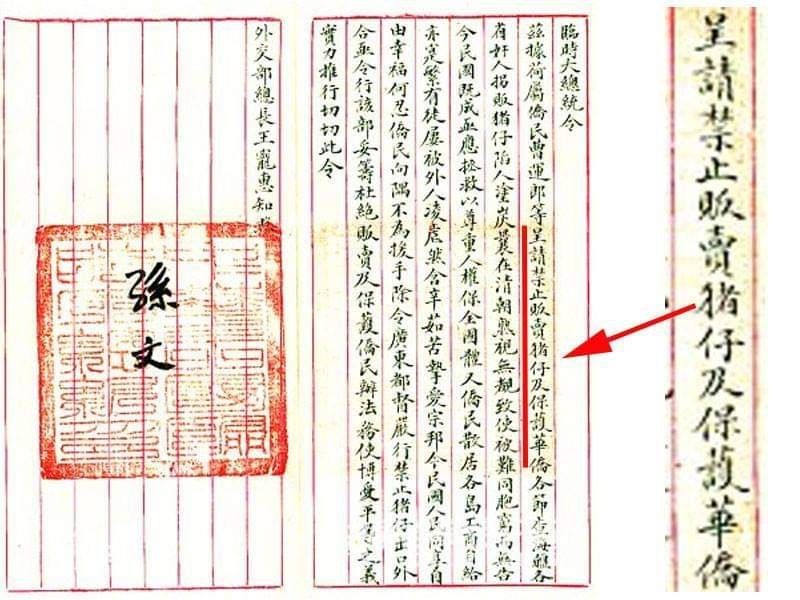 呈請禁止販賣猪仔及保護華僑
臨時大總統令
茲據荷屬僑民曹運郎等呈請禁止販賣猪仔及保護華僑各節查海疆各
省奸人拐販猪仔陷人塗炭曩在清朝熟視無覩致使被難同胞窮而無告
今民國既成亟應拯救以尊重人權保全國體又僑民散居各島工商自給
亦寔繁有徒屢被外人凌虐然含辛茹苦摯愛宗邦今民國人民同享自
由幸福何忍僑民向隅不為援手除令廣東都督嚴行禁止猪仔出口外
合亟令行該部妥籌杜絕販賣及保護僑民辦法務使博愛平等之義
實力推行切切此令
外交部總長王寵惠知照
孫文